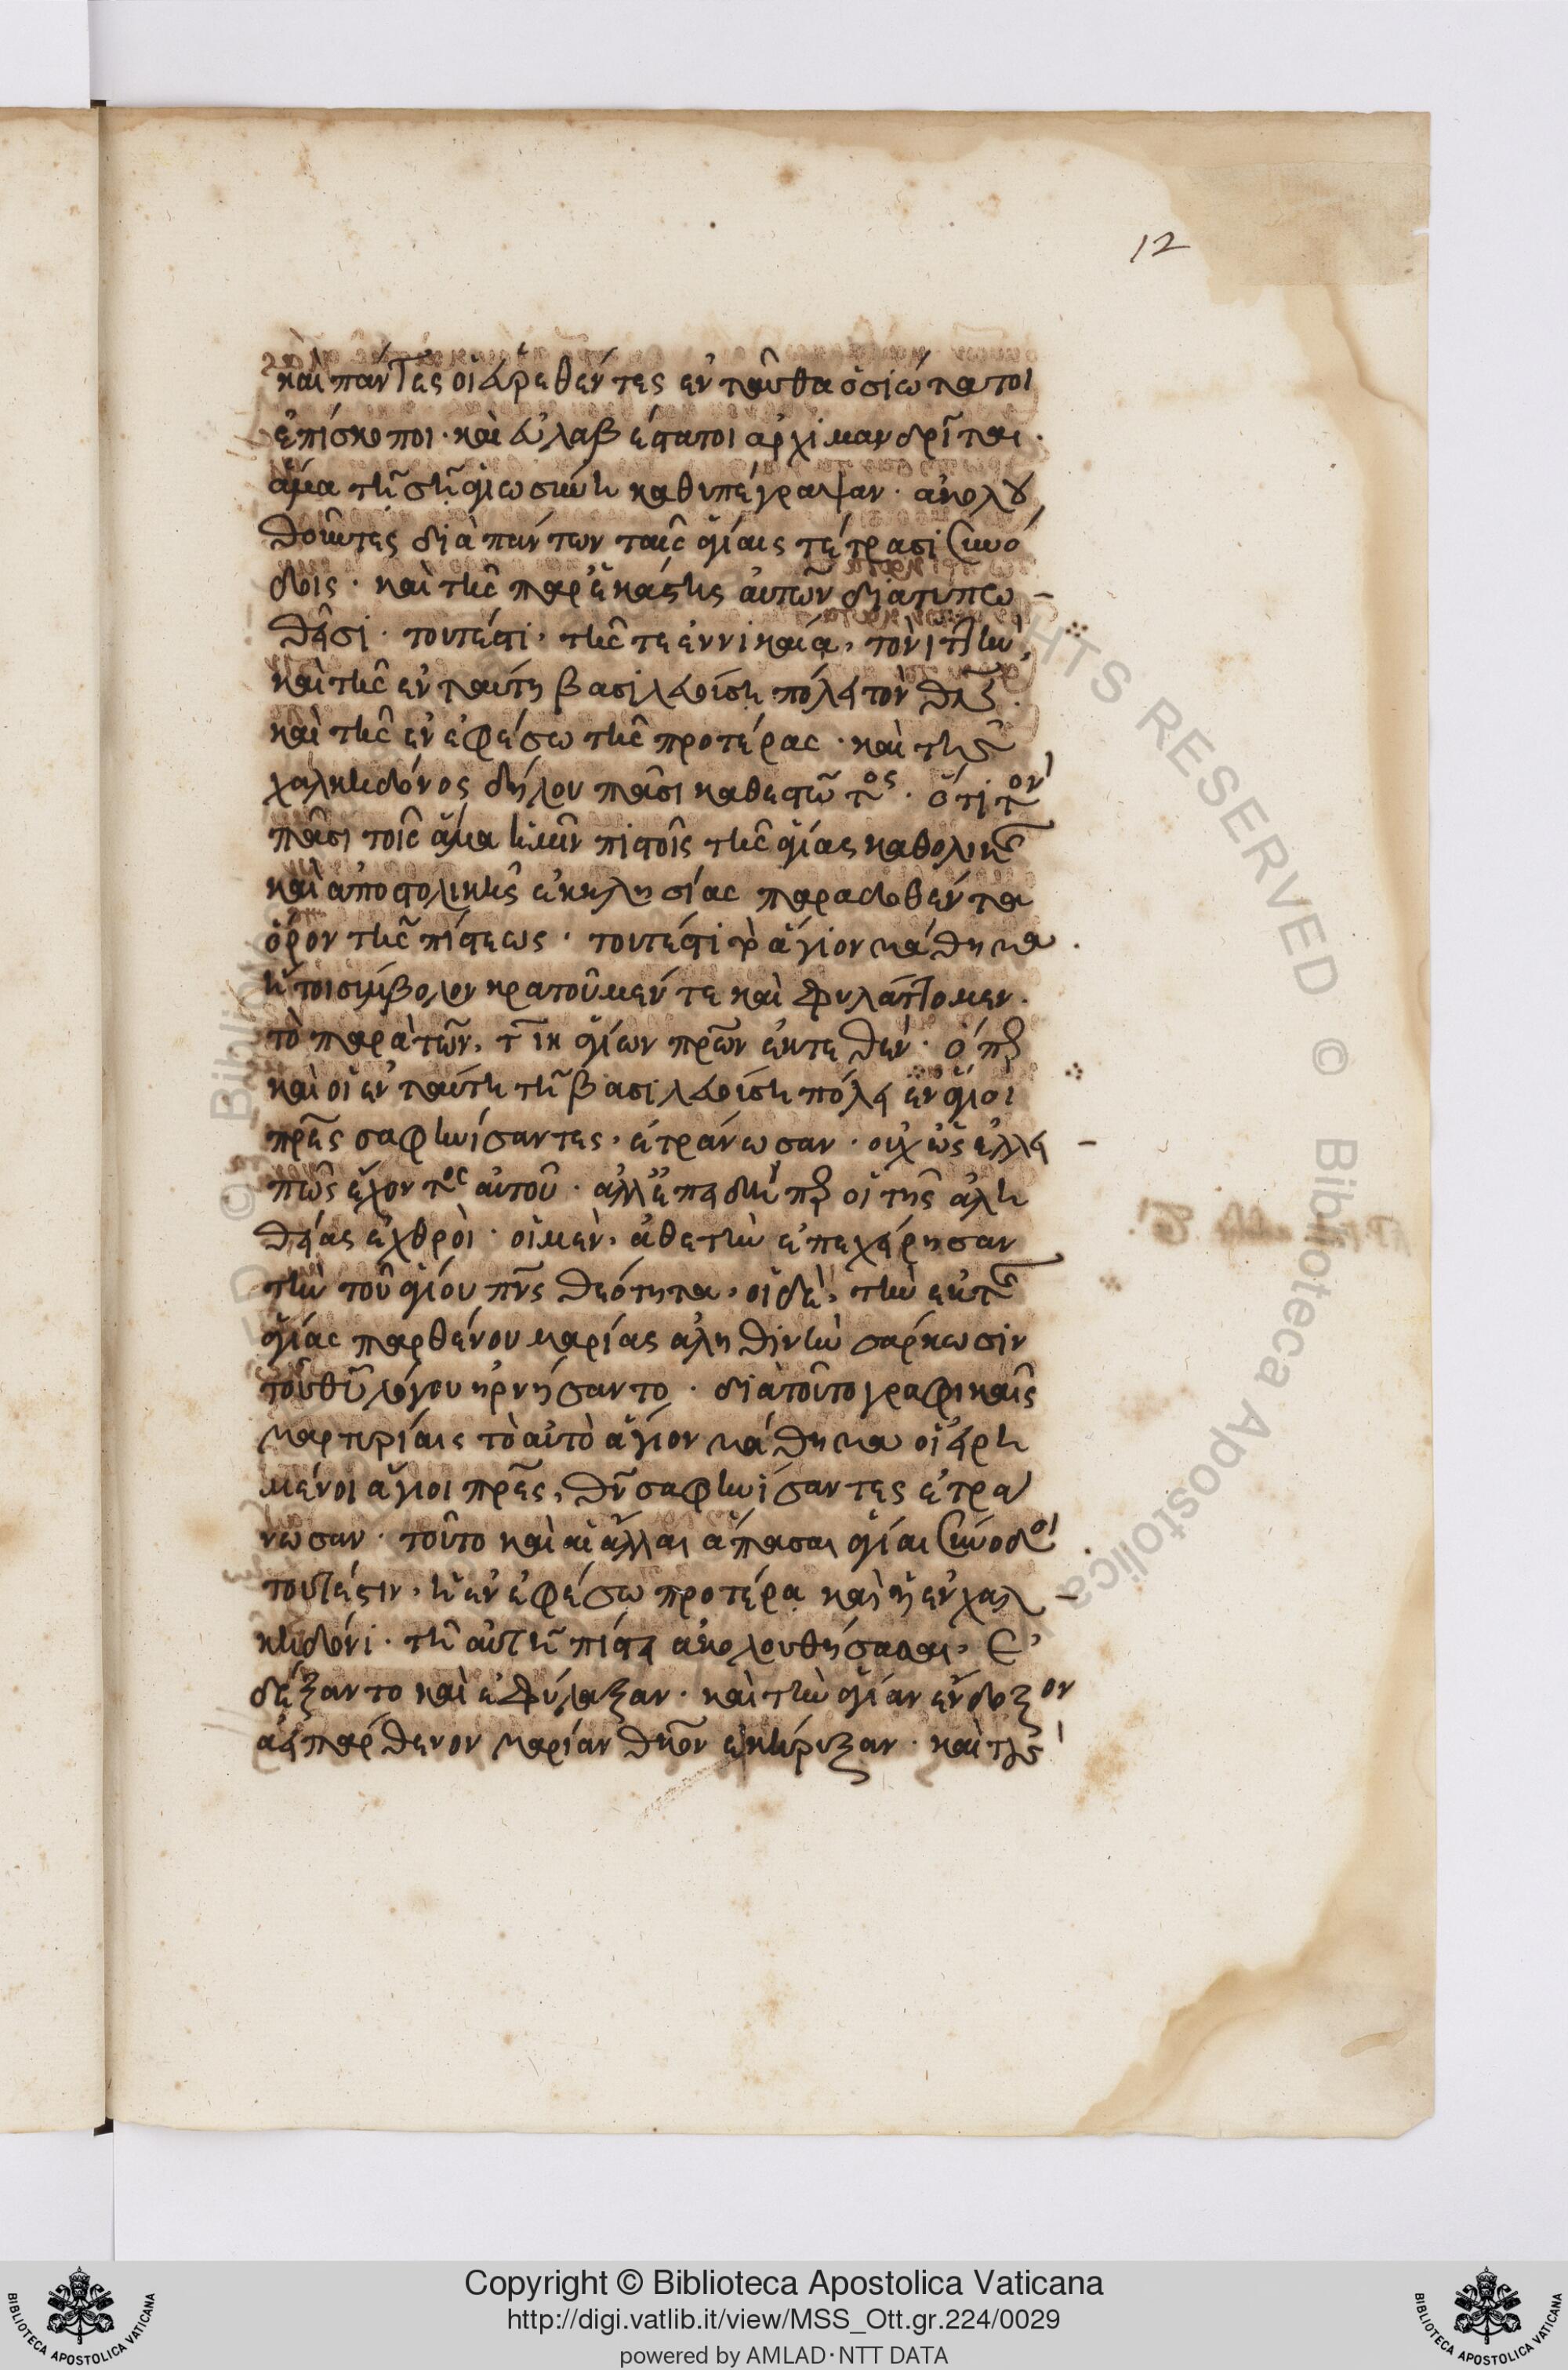 12
καὶ πάντες οἱ εὑρεθέντες ἐνταῦθα ὁσιώτατοι
ἐπίσκοποι · καὶ εὐλαβέστατοι ἀρχιμανδρῖται ·
ἅμα τῆ σῆ ἁγιωσύνη καθυπέγραψαν · ἀκολου
θοῦντες διὰ πάντων ταῖς ἁγίαις τέτρασι συνό
δοις · καὶ τῆς παρ' ἑκάστης αὐτῶν διατυπώ –
θεῖσι · τουτέστι, τῆς τε ἐν νικαία, τῶν τιη,
καὶ τῆς ἐν ταύτη βασιλευούση πόλει τῶν
καὶ τῆς ἐν ἐφέσω τῆς προτέρας · καὶ τῆς
χαλκηδόνος δήλου πᾶσι καθεστῶτος · ὅτι τὸν
πᾶσι τοῖς ἅμα ἡμῖν πιστοῖς τῆς ἁγίας καθολικῆς
καὶ ἀποστολικῆς ἐκκλησίας παραδοθέντα
ὅρον τῆς πίστεως · τουτέστι τὸ ἅγιον μάθημα ·
ἤτοι σύμβολον κρατοῦμέν τε καὶ φυλάττομεν ·
τὸ παρὰ τῶν, τιη ἁγίων πρῶν ἐκτεθέν · ὅπερ
καὶ οἱ ἐν ταύτη τῆ βασιλευούση πόλει ρν ἅγιοι
πρες σαφηνίσαντες, ἐτράνωσαν · οὐχ ὡς ἐλλει –
πῶς ἔχοντος αὐτοῦ · ἀλλ' ἐπειδήπερ οἱ τῆς ἀλη
θείας ἐχθροὶ · οἱ μὲν, ἀθετεῖν ἐπεχείρησαν
τὴν τοῦ ἁγίου πνς θεότητα, οἱ δὲ, τὴν ἐκ τῆς
ἁγίας παρθένου μαρίας ἀληθινὴν σάρκωσιν
τοῦ θυ λόγου ἠρνήσαντο · διὰ τοῦτο γραφικαῖς
μαρτυρίαις τὸ αὐτὸ ἅγιον μάθημα οἱ εἰρη
μένοι ἅγιοι πρες, ρν σαφηνίσαντες ἐτρά
νωσαν · τοῦτο καὶ αἱ ἄλλαι ἅπασαι ἅγίαι σύνοδοι ·
τουτέστιν, ἡ ἐν ἐφέσω προτέρα καὶ ἡ ἐν χαλ –
κηδόνι · τῆ αὐτῆ πίστει ἀκολουθήσασαι, ἐ
δέξαντο καὶ ἐφύλαξαν · καὶ τὴν ἁγίαν ἔνδοξον
ἀειπάρθενον μαρίαν θκον ἐκήρυξαν · καὶ τοὺς
Copyright © Biblioteca Apostolica Vaticana
http://digi.vatlib.it/view/MSS_Ott.gr.224/0029
powered by AMLAD·NTT DATA
BIBLIOTECA APOSTOLICA VATICANA
BIBLIOTECA APOSTOLICA VATICANA